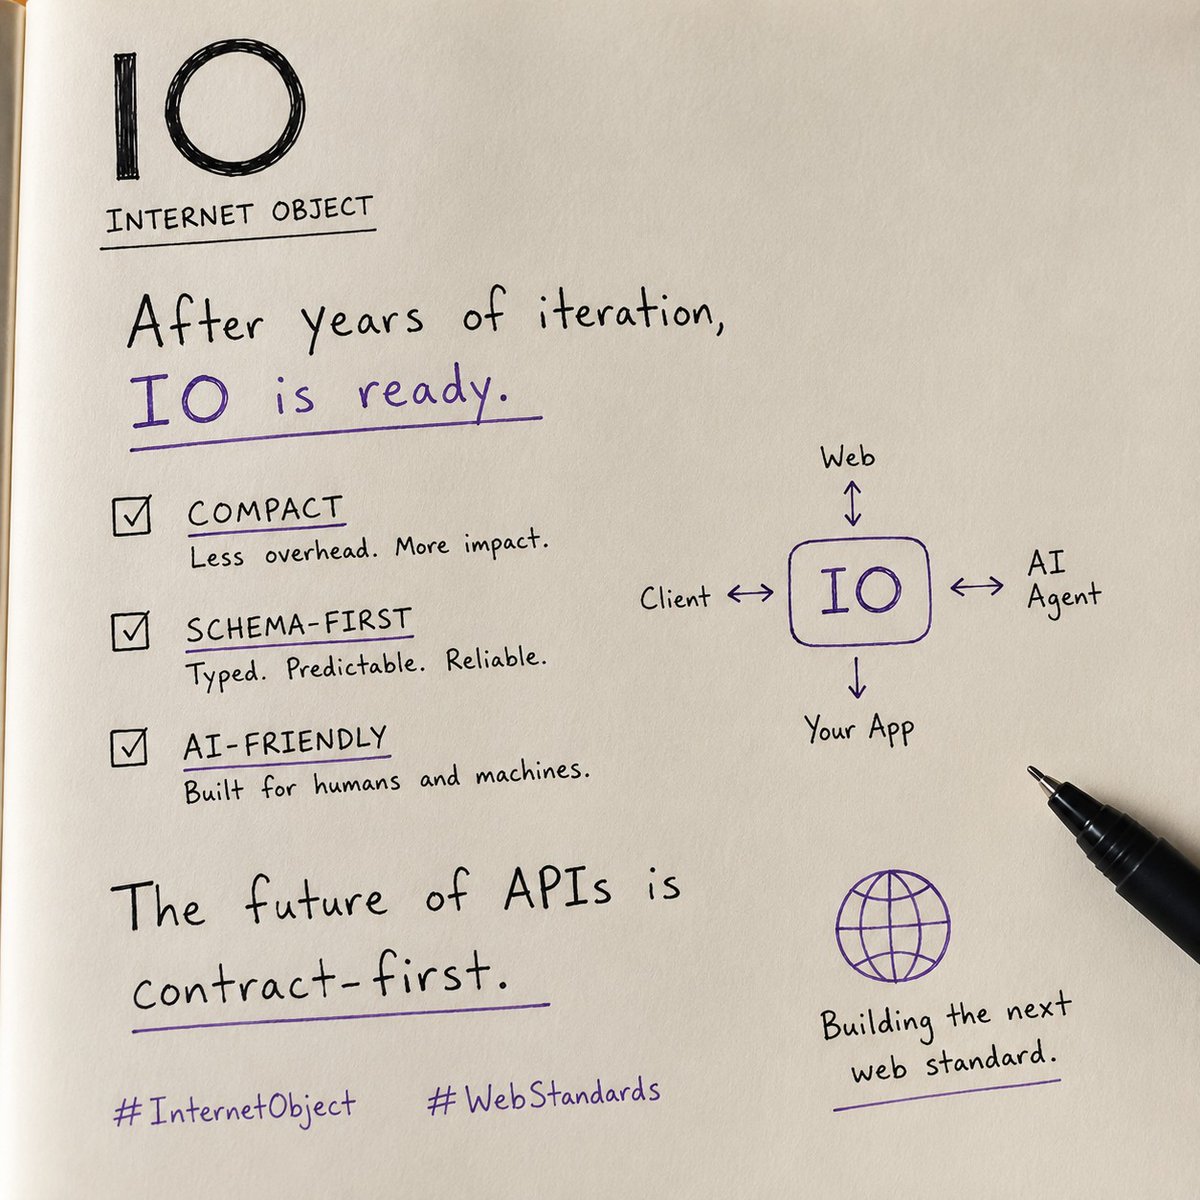 IO
INTERNET OBJECT
After years of iteration,
IO is ready.
COMPACT
Less overhead. More impact.
SCHEMA-FIRST
Typed. Predictable. Reliable.
AI-FRIENDLY
Built for humans and machines.
Web
Client
IO
AI
Agent
Your App
The future of APIs is
contract-first.
Building the next
web standard.
#InternetObject
#WebStandards